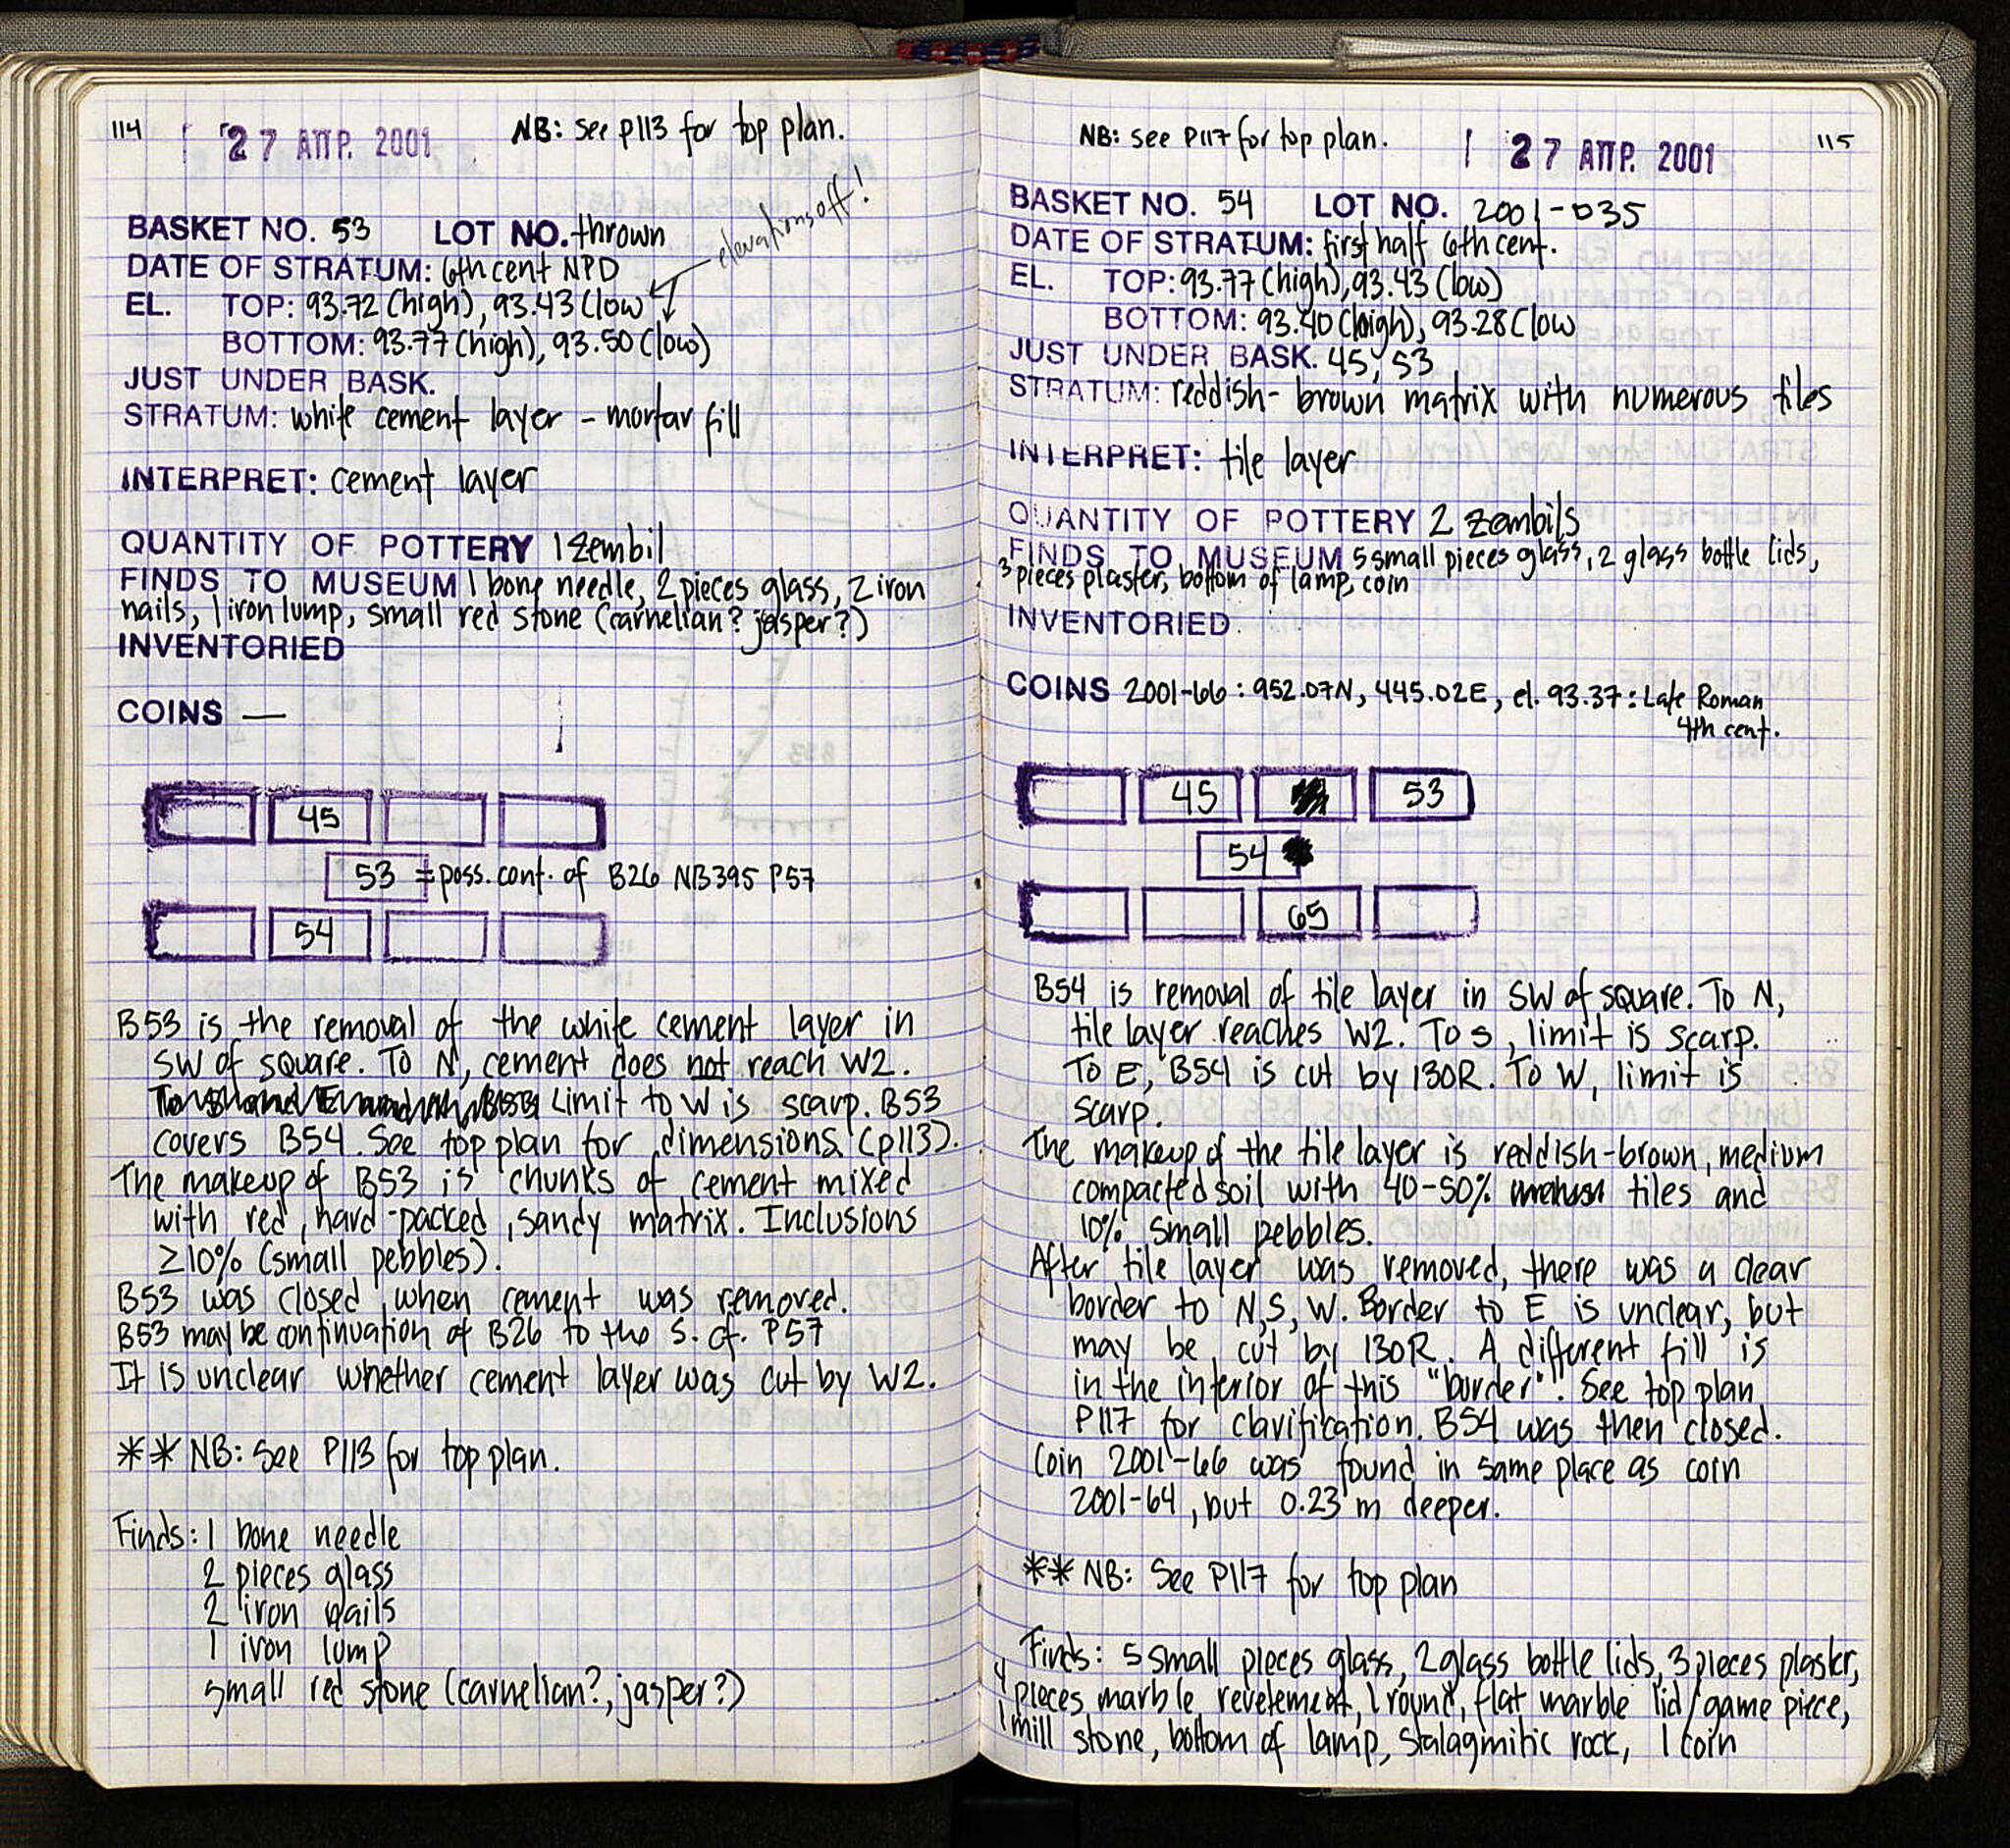 114
27 ΑΠΡ. 2001
NB: see p113 for top plan.
elevations off!
BASKET NO. 53 LOT NO. thrown
DATE OF STRATUM: 6th cent NPD
EL. TOP: 93.72 (high), 93.43 (low
BOTTOM: 93.77 (high), 93.50 (low)
JUST UNDER BASK.
STRATUM: white cement layer - mortar fill
INTERPRET: cement layer
QUANTITY OF POTTERY 1 zembil
FINDS TO MUSEUM 1 bone needle, 2 pieces glass, 2 iron
nails, 1 iron lump, small red stone (carnelian? jasper?)
INVENTORIED
COINS —
45
53 = poss. cont. of B26 NB395 P57
54
B53 is the removal of the white cement layer in
SW of square. To N, cement does not reach W2.
Limit to W is scarp. B53
covers B54. See top plan for dimensions. (p113).
The makeup of B53 is chunks of cement mixed
with red, hard-packed, sandy matrix. Inclusions
≥10% (small pebbles).
B53 was closed when cement was removed.
B53 may be continuation of B26 to the S. cf. P57
It is unclear whether cement layer was cut by W2.
** NB: See P113 for top plan.
Finds: 1 bone needle
2 pieces glass
2 iron nails
1 iron lump
small red stone (carnelian?, jasper?)
NB: see P117 for top plan.
27 ΑΠΡ. 2001
115
BASKET NO. 54 LOT NO. 2001-035
DATE OF STRATUM: first half 6th cent.
EL. TOP: 93.77 (high), 93.43 (low)
BOTTOM: 93.40 (high), 93.28 (low
JUST UNDER BASK. 45, 53
STRATUM: reddish-brown matrix with numerous tiles
INTERPRET: tile layer
QUANTITY OF POTTERY 2 zembils
FINDS TO MUSEUM 5 small pieces glass, 2 glass bottle lids,
3 pieces plaster, bottom of lamp, coin
INVENTORIED
COINS 2001-66: 952.07N, 445.02E, el. 93.37: Late Roman
4th cent.
45 53
54
65
B54 is removal of tile layer in SW of square. To N,
tile layer reaches W2. To S, limit is scarp.
To E, B54 is cut by 130R. To W, limit is
scarp.
The makeup of the tile layer is reddish-brown, medium
compacted soil with 40-50% tiles and
10% small pebbles.
After tile layer was removed, there was a clear
border to N, S, W. Border to E is unclear, but
may be cut by 130R. A different fill is
in the interior of this "border". See top plan
P117 for clarification. B54 was then closed.
Coin 2001-66 was found in same place as coin
2001-64, but 0.23 m deeper.
** NB: See P117 for top plan
Finds: 5 small pieces glass, 2 glass bottle lids, 3 pieces plaster,
4 pieces marble revetement, 1 round, flat marble lid/game piece,
1 mill stone, bottom of lamp, stalagmitic rock, 1 coin